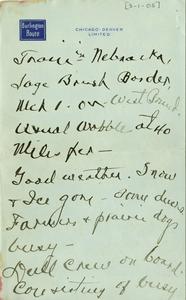 [3-1-05]
Burlington
Route
CHICAGO-DENVER
LIMITED.
Train in Nebraska,
Sage Brush Border,
Mch 1. on West Bound.
Usual Wobble at 40
Miles per —
Good weather. Snow
& Ice gone —
Farmers & prairie dogs
busy —
Dull Crew on board
Consisting of busy